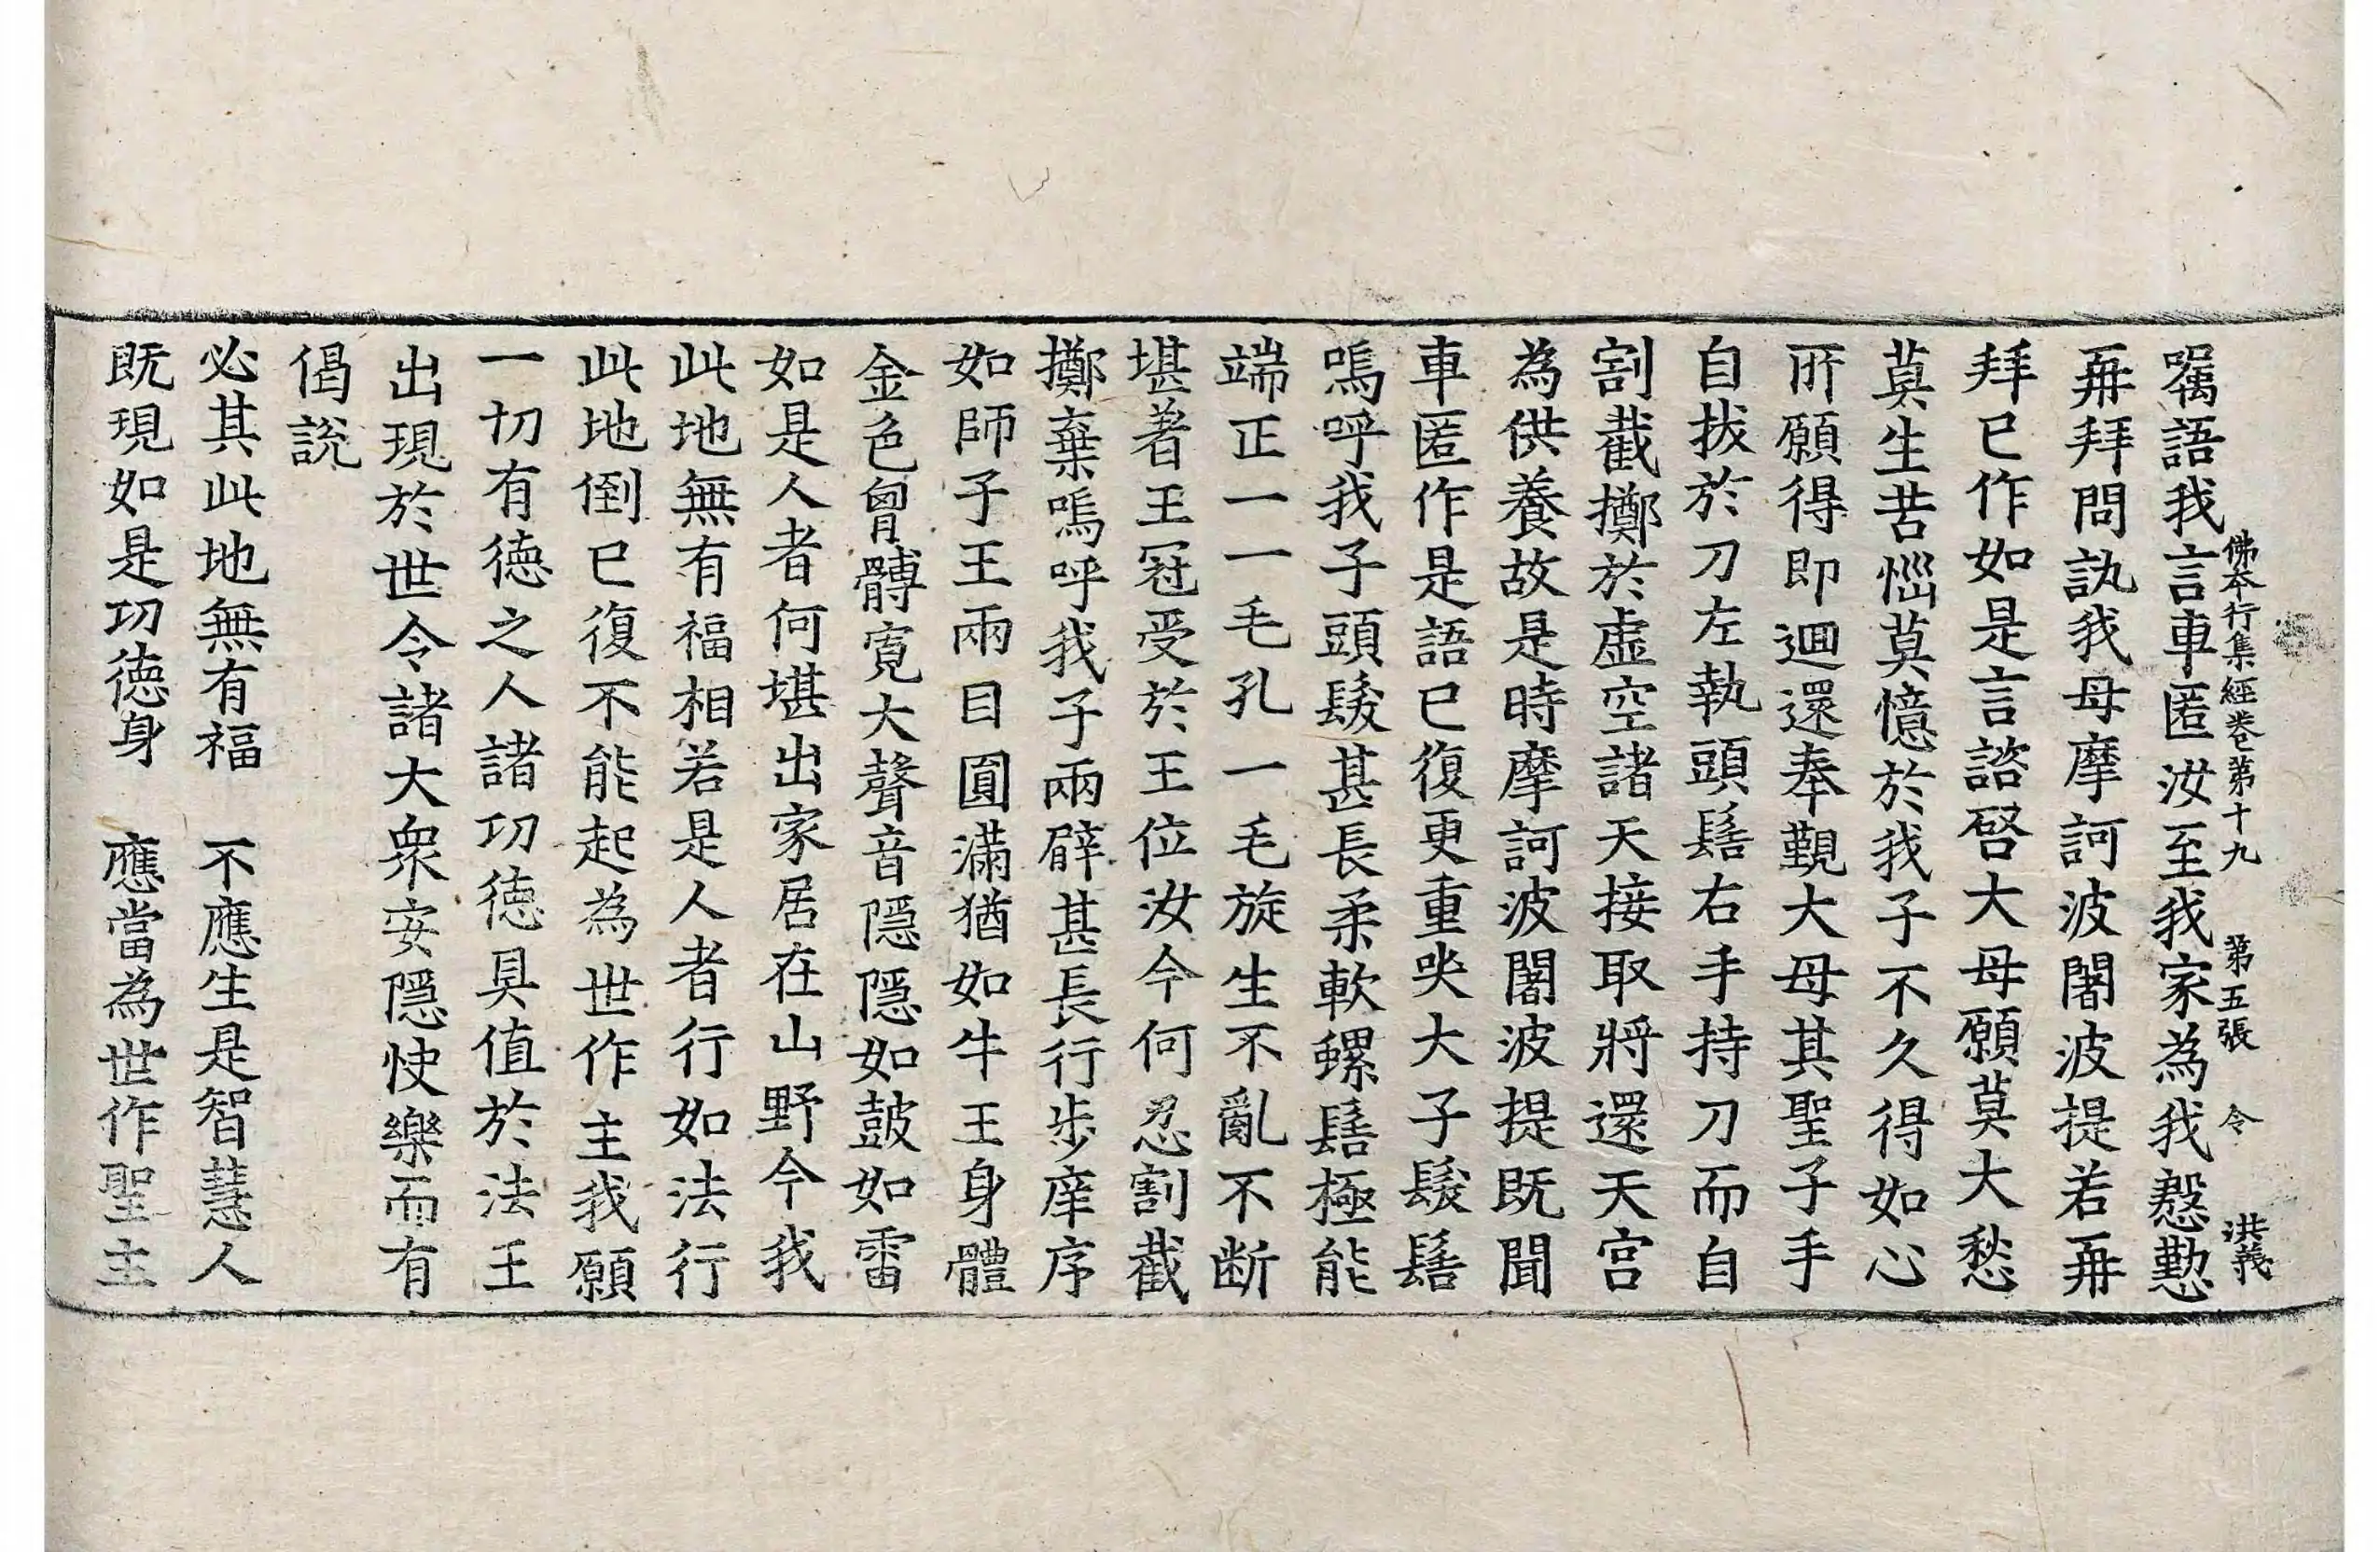 佛本行集經卷第十九　第五張　令　洪義
囑語我言車匿汝至我家為我慇懃
再拜問訊我母摩訶波闍波提若再
拜已作如是言諮啓大母願莫大愁
莫生苦惱莫憶於我我子不久得如心
所願得即迴還奉覲大母其聖子手
自拔於刀左執頭髻右手持刀而自
割截擲於虛空諸天接取將還天宮
為供養故是時摩訶波闍波提既聞
車匿作是語已復更重哭大子髮髻
嗚呼我子頭髮甚長柔軟螺髻極能
端正一一毛孔一毛旋生不亂不断
堪著王冠受於王位汝今何忍割截
擲棄嗚呼我子兩臂甚長行步庠序
如師子王兩目圓滿猶如牛王身體
金色胷髆寬大聲音隱隱如鼓如雷
如是人者何堪出家居在山野今我
此地無有福相若是人者行如法行
此地倒已復不能起為世作主我願
一切有德之人諸功德具值於法王
出現於世令諸大衆安隱快樂而有
偈說
必其此地無有福　不應生是智慧人
既現如是功德身　應當為世作聖主